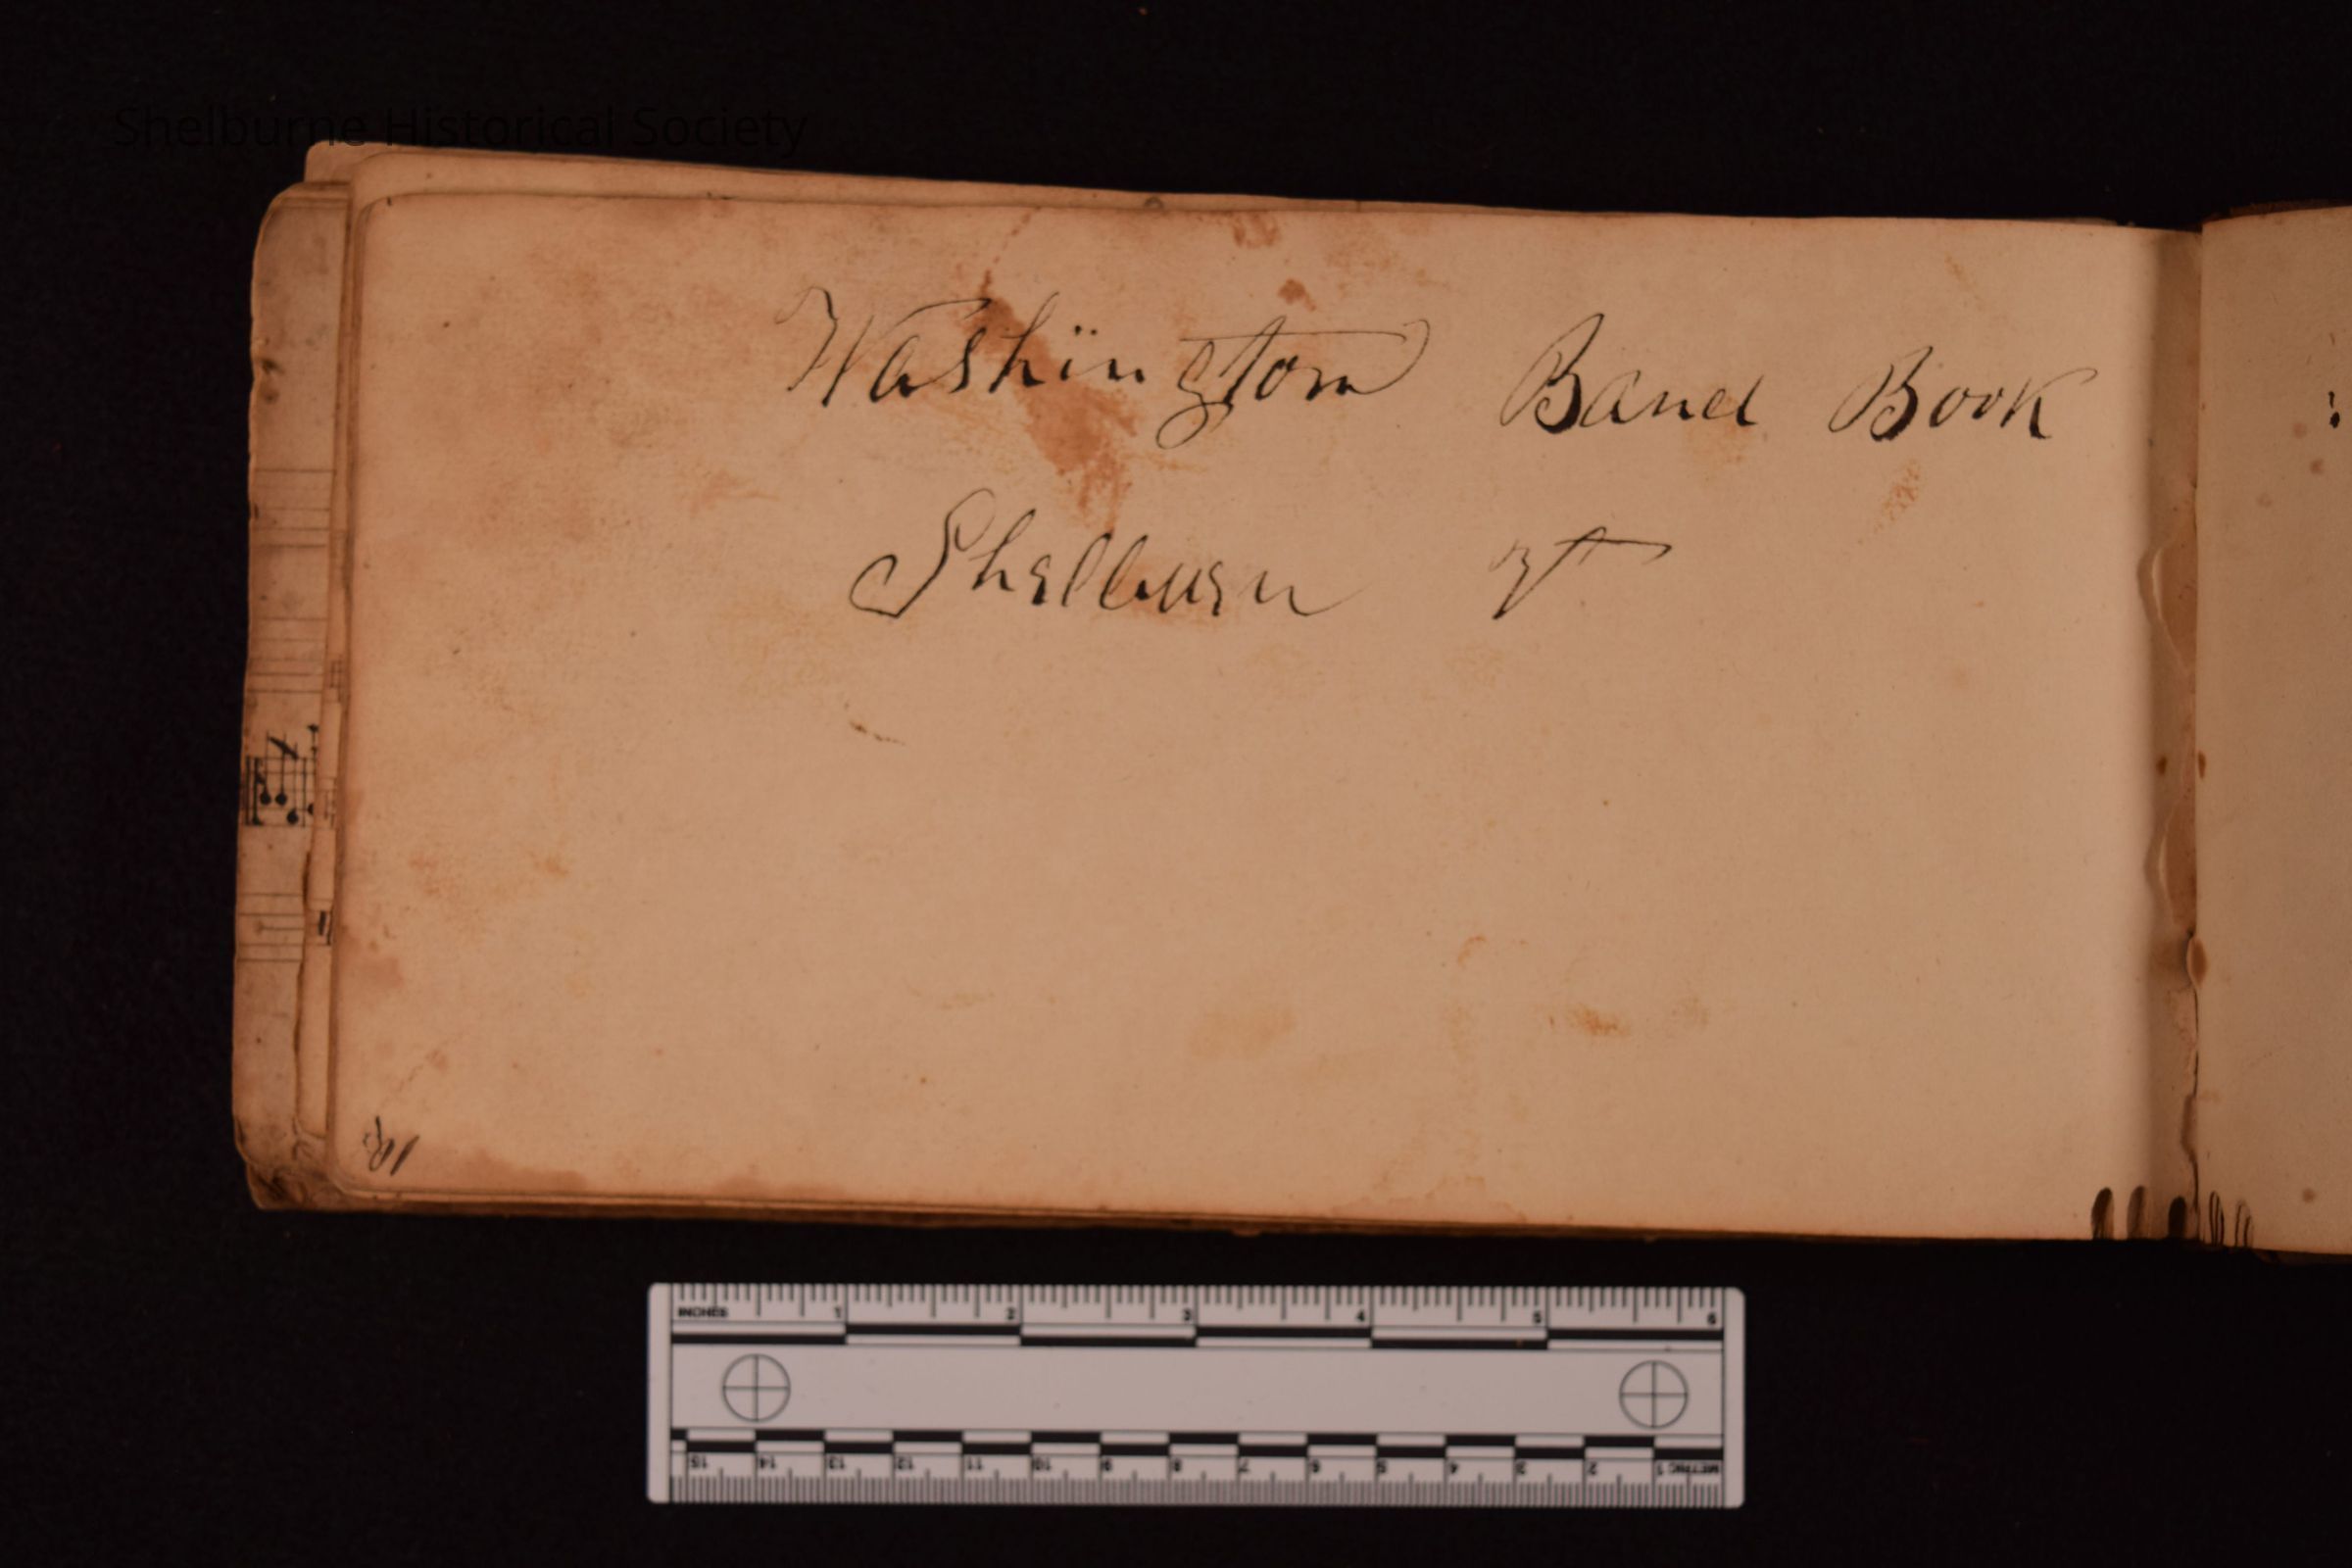 Shelburne Historical Society
Washington Band Book
Shelburn Vt
INCHES 1 2 3 4 5 6
15 14 13 12 11 10 9 8 7 6 5 4 3 2 1 METRIC